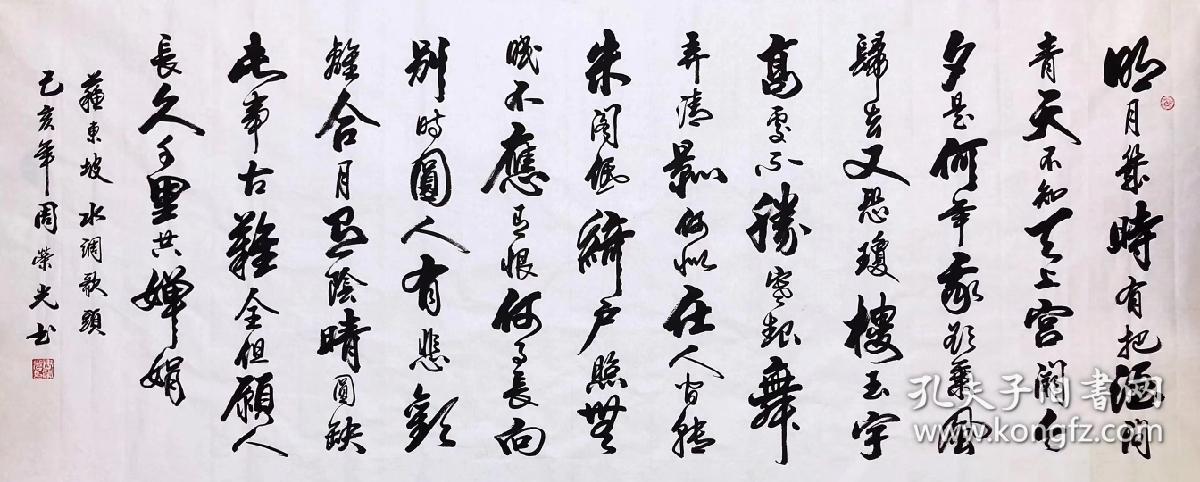 明月幾時有把酒問
青天不知天上宮闕今
夕是何年我欲乘風
歸去又恐瓊樓玉宇
高處不勝寒起舞
弄清影何似在人間轉
朱閣低綺戶照無
眠不應有恨何事長向
別時圓人有悲歡
離合月有陰晴圓缺
此事古難全但願人
長久千里共嬋娟
蘇東坡水調歌頭
己亥年周榮光書
孔夫子旧书网
www.kongfz.com